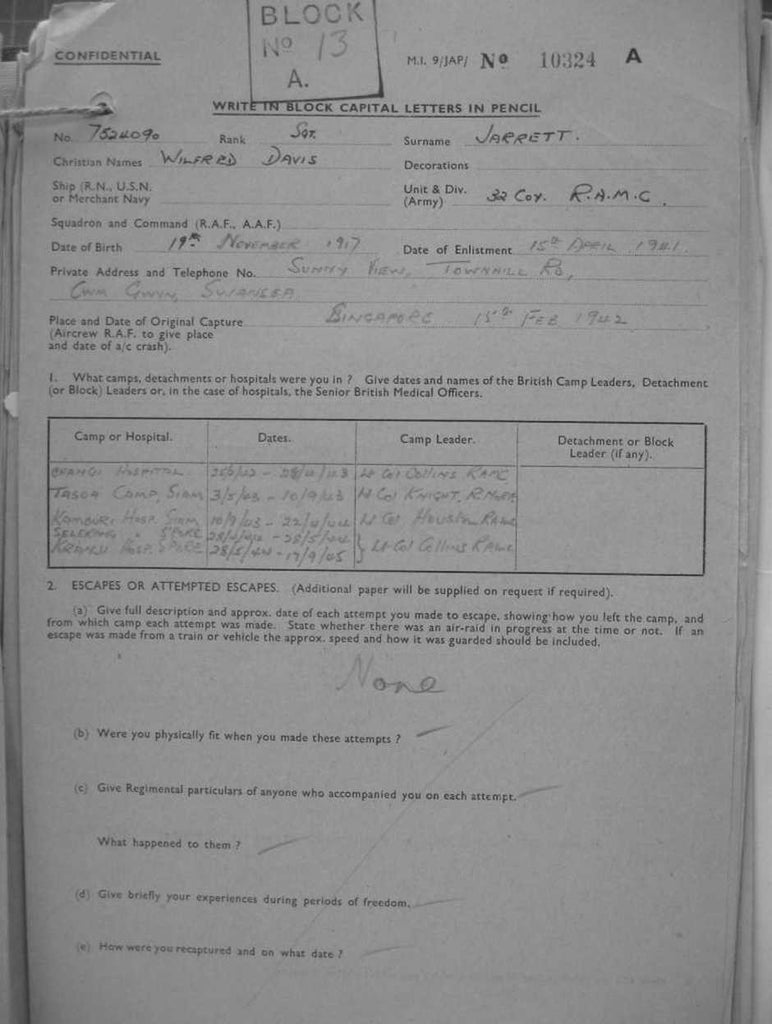 BLOCK
Nº 13
A.
CONFIDENTIAL
M.I. 9/JAP/ Nº 10324 A
WRITE IN BLOCK CAPITAL LETTERS IN PENCIL
No. 7524090 Rank SGT. Surname JARRETT.
Christian Names WILFRED DAVIS Decorations
Ship (R.N., U.S.N. or Merchant Navy
Unit & Div. (Army) 32 COY. R.A.M.C.
Squadron and Command (R.A.F., A.A.F.)
Date of Birth 19th NOVEMBER 1917 Date of Enlistment 15th APRIL 1941.
Private Address and Telephone No. SUNNY VIEW, TOWNHILL RD,
CWM GWYN, SWANSEA
Place and Date of Original Capture SINGAPORE 15th FEB 1942
(Aircrew R.A.F. to give place
and date of a/c crash).
1. What camps, detachments or hospitals were you in ? Give dates and names of the British Camp Leaders, Detachment
(or Block) Leaders or, in the case of hospitals, the Senior British Medical Officers.
Camp or Hospital. Dates. Camp Leader. Detachment or Block
Leader (if any).
CHANGI HOSPITAL Lt Col COLLINS RAMC
CAMP, SIAM 3/5/43 - 10/9/43 Lt Col KNIGHT,
HOSP. SIAM 10/9/43 - 22/4/44 Lt Col HOUSTON RAMC
S'PORE - 28/5/44
KRANJI HOSP. S'PORE 28/5/44 - 17/9/45 } Lt Col Collins RAMC
2. ESCAPES OR ATTEMPTED ESCAPES. (Additional paper will be supplied on request if required).
(a) Give full description and approx. date of each attempt you made to escape, showing how you left the camp, and
from which camp each attempt was made. State whether there was an air-raid in progress at the time or not. If an
escape was made from a train or vehicle the approx. speed and how it was guarded should be included.
None
(b) Were you physically fit when you made these attempts ?
(c) Give Regimental particulars of anyone who accompanied you on each attempt.
What happened to them ?
(d) Give briefly your experiences during periods of freedom.
(e) How were you recaptured and on what date ?